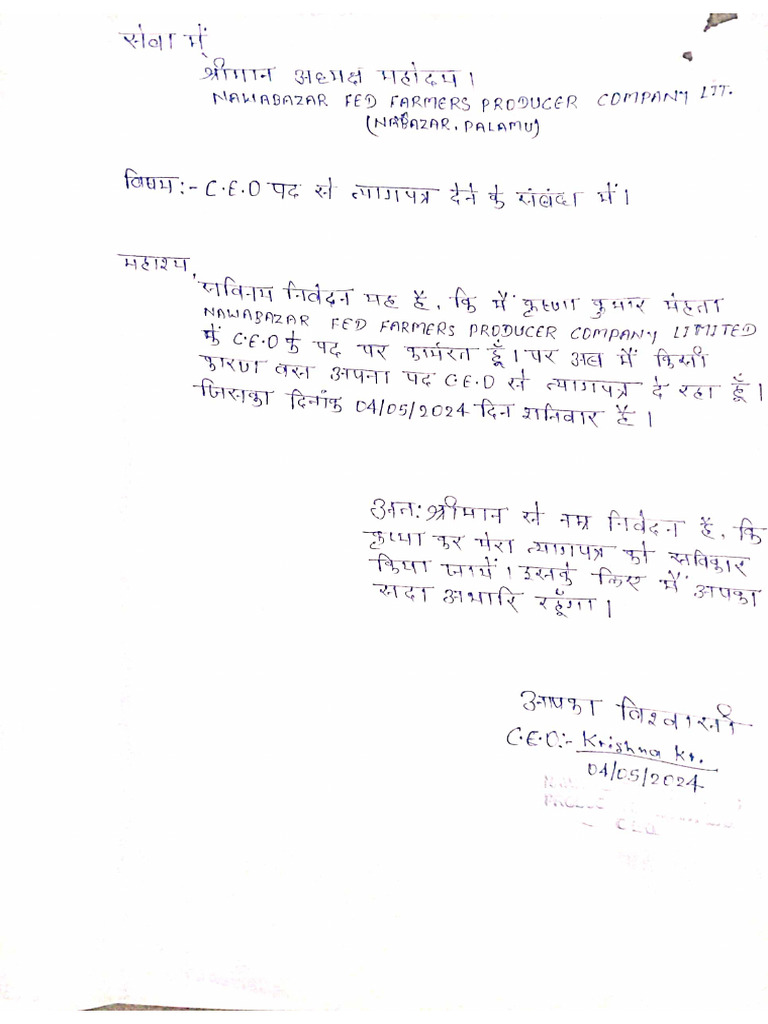 सेवा में
श्रीमान अध्यक्ष महोदय।
NAWABAZAR FED FARMERS PRODUCER COMPANY LIT.
(NABAZAR, PALAMU)
विषय:- C.E.O पद से त्यागपत्र देने के संबंध में।
महाश्य,
सविनय निवेदन यह है, कि मैं कृष्णा कुमार मेहता
NAWABAZAR FED FARMERS PRODUCER COMPANY LIMITED
में C.E.O के पद पर कार्यरत हूँ। पर अब मैं किसी
कारण वस अपना पद C.E.O से त्यागपत्र दे रहा हूँ।
जिसका दिनांक 04/05/2024 दिन शनिवार है।
अत: श्रीमान से नम्र निवेदन है, कि
कृप्या कर मेरा त्यागपत्र को सविकार
किया जायें। इसके लिए मैं आपका
सदा अभारि रहूँगा।
आपका विश्वासी
C.E.O:- Krishna Kr.
04/05/2024
CEO